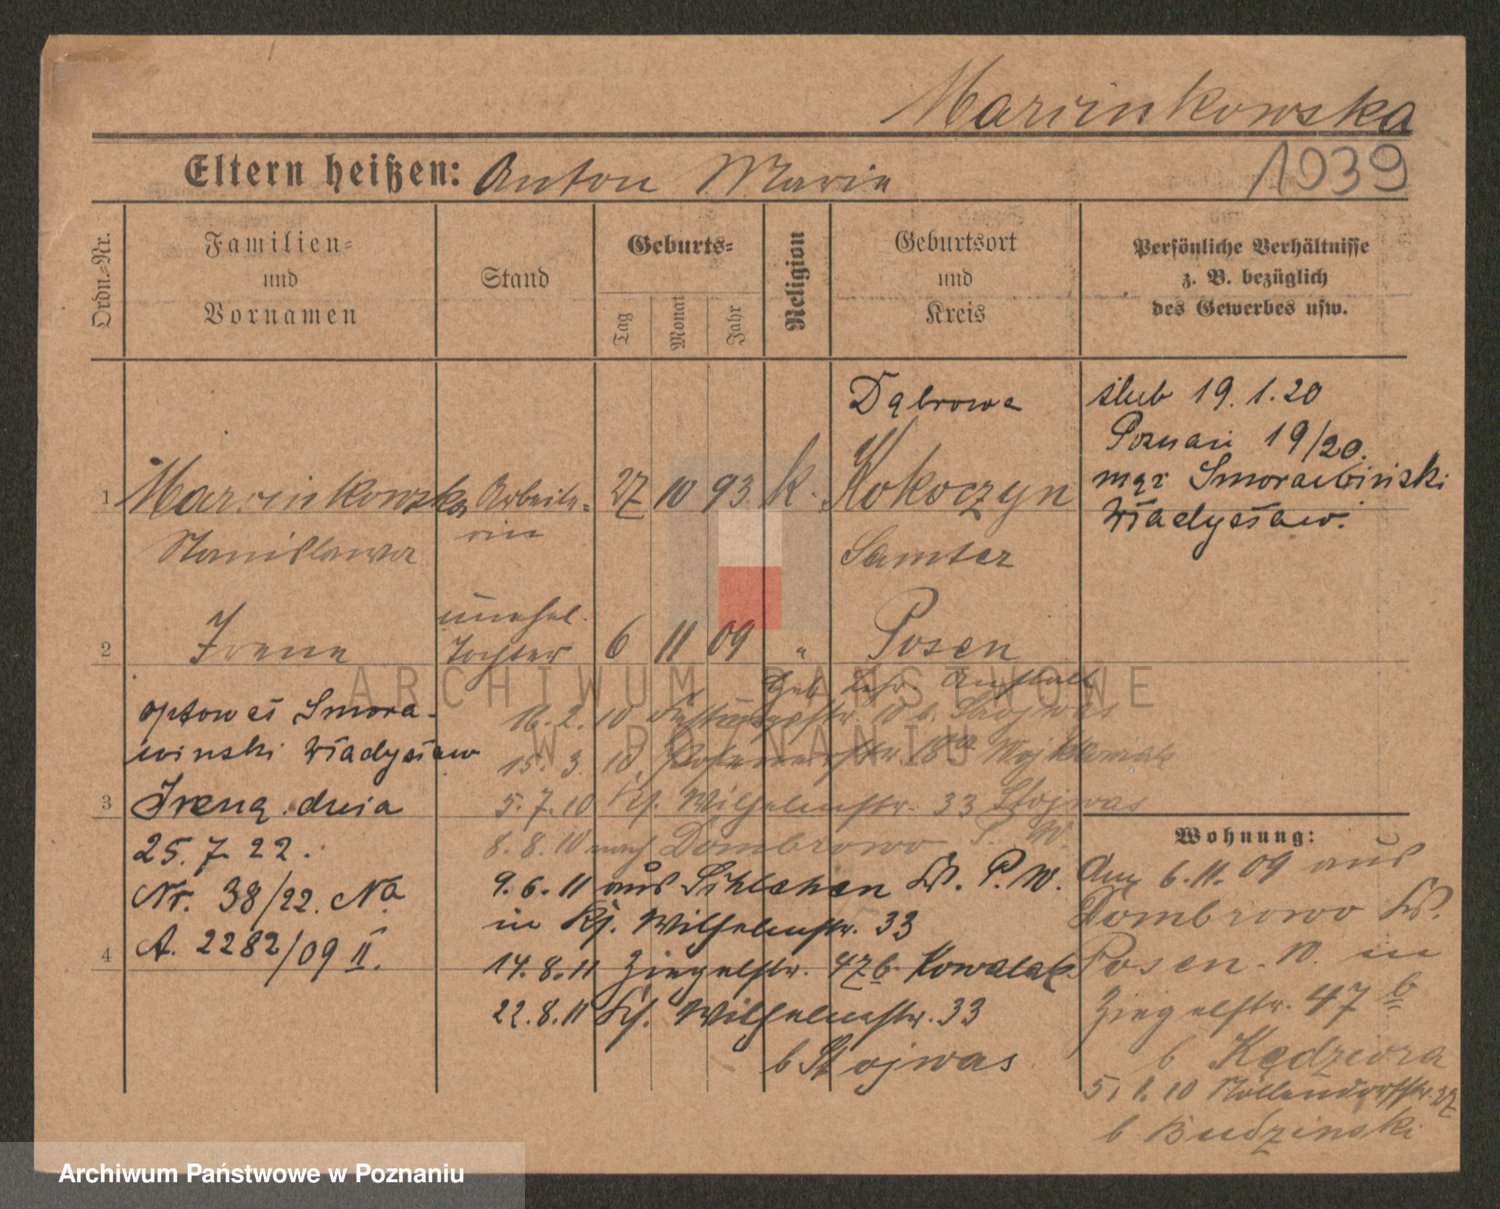 Marcinkowska
Eltern heißen: Anton Marie
1939
Ordn.-Nr.
Familien- und Vornamen
Stand
Geburts-
Tag Monat Jahr
Religion
Geburtsort und Kreis
Persönliche Verhältnisse z. B. bezüglich des Gewerbes usw.
Dąbrowa
ślub 19.1.20
Poznań 19/20.
mąż Smorawiński
Władysław.
1 Marcinkowska Arbeite- 27 10 93 k. Kokoczyn
Stanislawa rin Samter
unehel.
2 Irene Tochter 6 11 09 " Posen
Geb. Lehr Anstalt
optował Smora-
winski Władysław
3 Ireną dnia
25.7.22.
Nr. 38/22. No
4 A. 2282/09 II.
16.2.10 b. Stojwas
15.3.10
5.7.10 Kr. Wilhelmstr. 33 Stojwas
8.8.10 nach Dombrowo P. W.
9.6.11 aus Kr. P. W.
in Kr. Wilhelmstr. 33
14.8.11 Ziegelstr. 47b. Kowalak
22.8.11 Kr. Wilhelmstr. 33
b Stojwas
Wohnung:
Anz 6.11.09 aus
Dombrowo Kr.
Posen. W. in
Ziegelstr. 47 b
b Kędziora
5.1.10 Nollendorfstr. 27
b Budzinski
ARCHIWUM PAŃSTWOWE
W POZNANIU
Archiwum Państwowe w Poznaniu